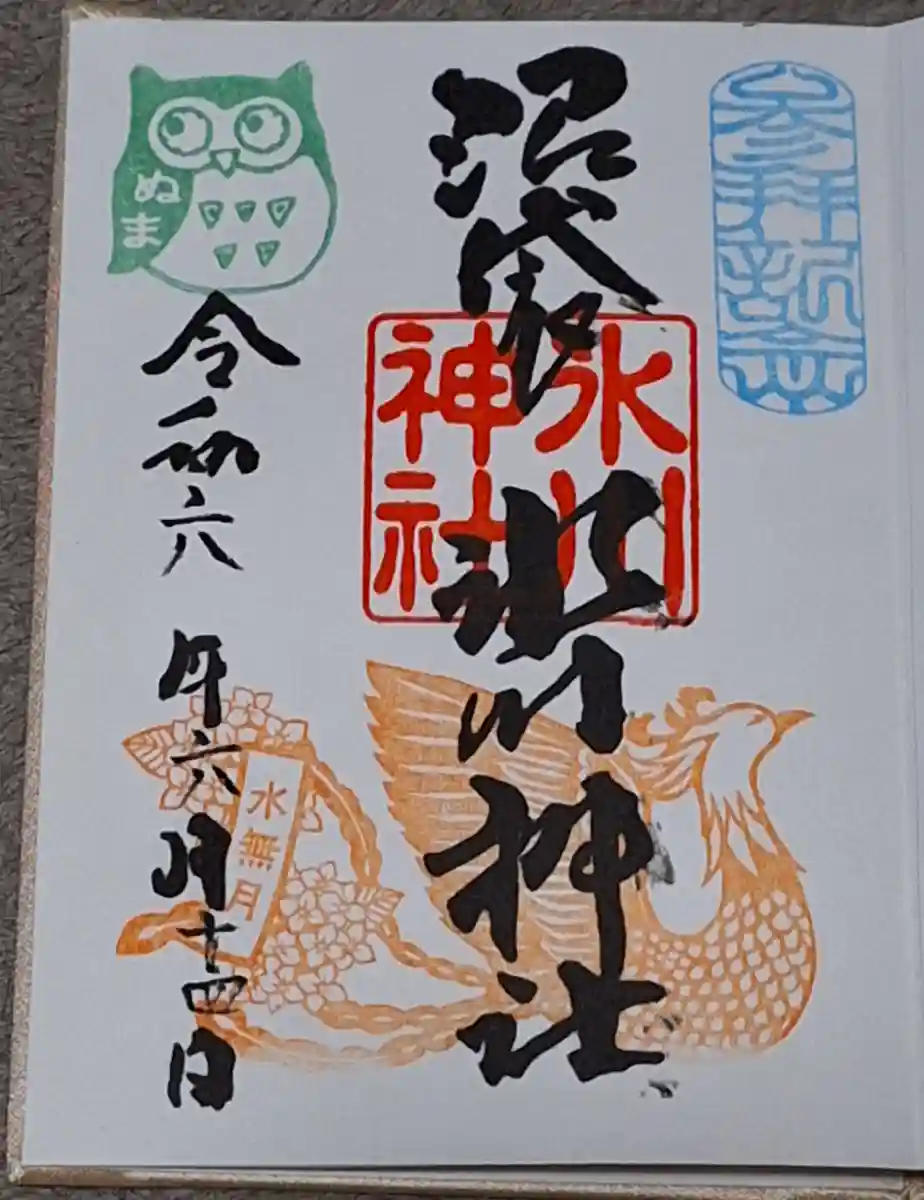 参拝記念
沼袋
氷川神社
氷川
神社
ぬま
令和六年六月十四日
水無月